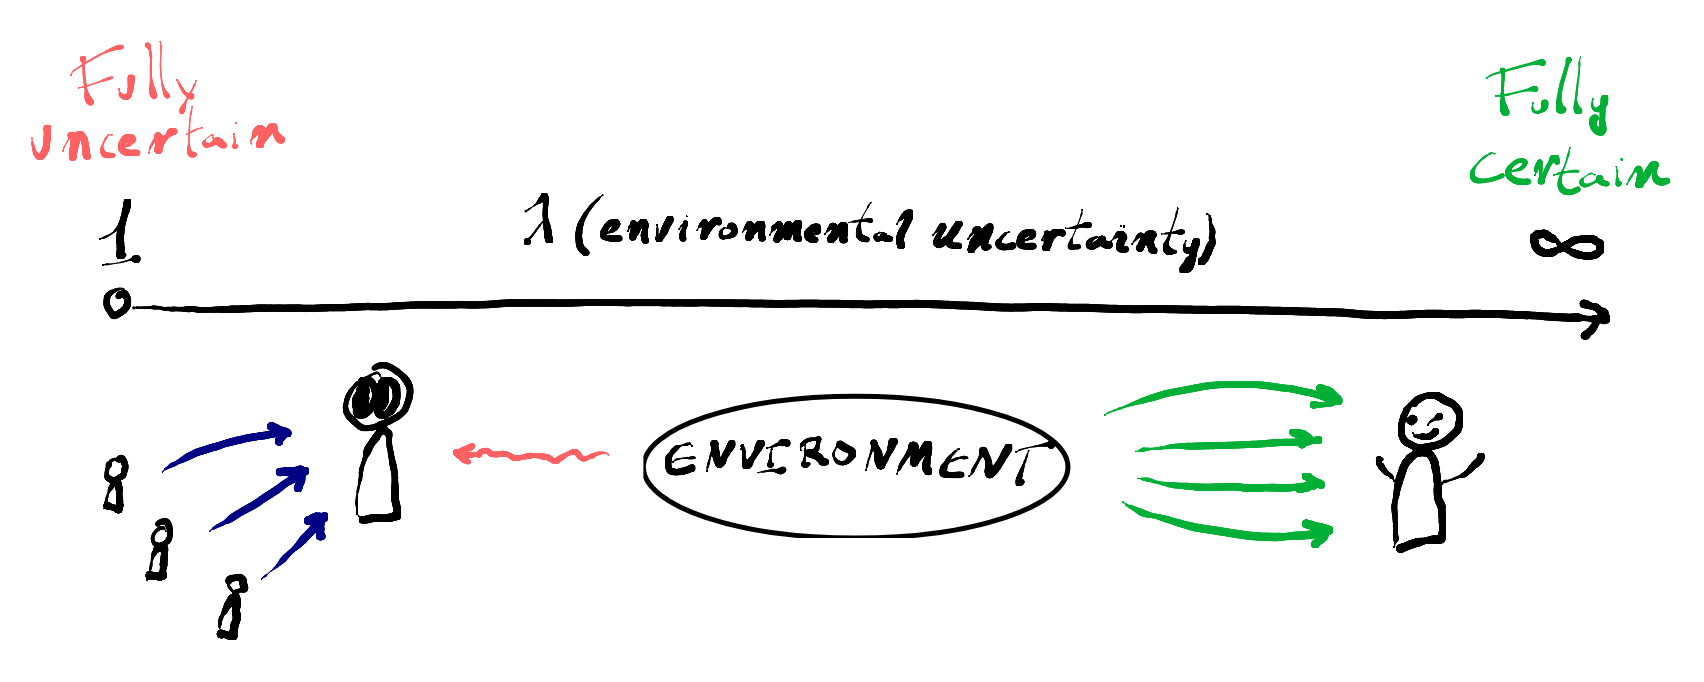 Fully
uncertain
Fully
certain
1
λ (environmental uncertainty)
∞
ENVIRONMENT